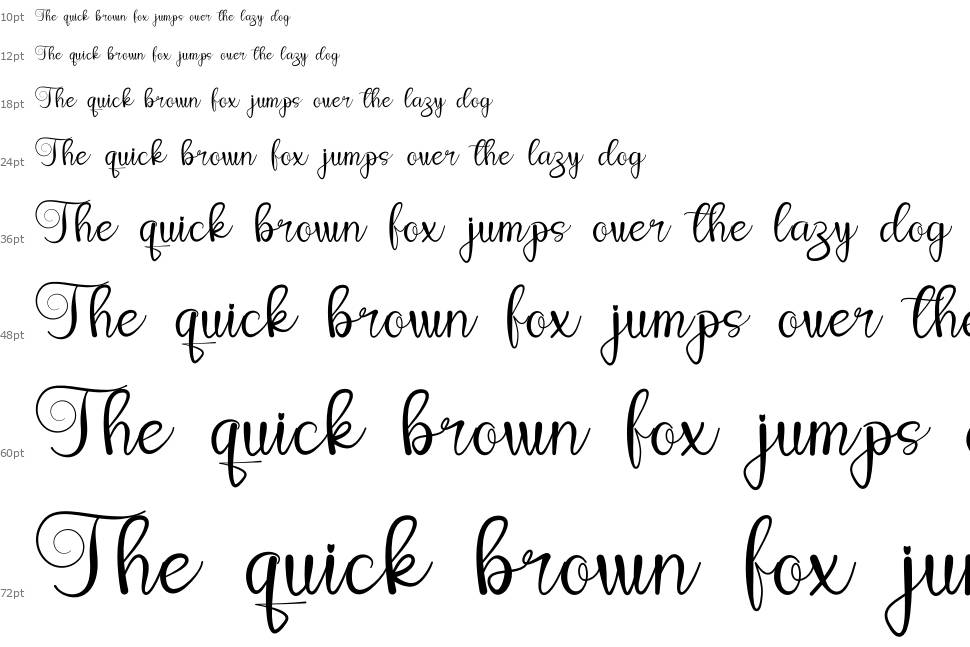 10pt The quick brown fox jumps over the lazy dog
12pt The quick brown fox jumps over the lazy dog
18pt The quick brown fox jumps over the lazy dog
24pt The quick brown fox jumps over the lazy dog
36pt The quick brown fox jumps over the lazy dog
48pt The quick brown fox jumps over the
60pt The quick brown fox jumps
72pt The quick brown fox ju